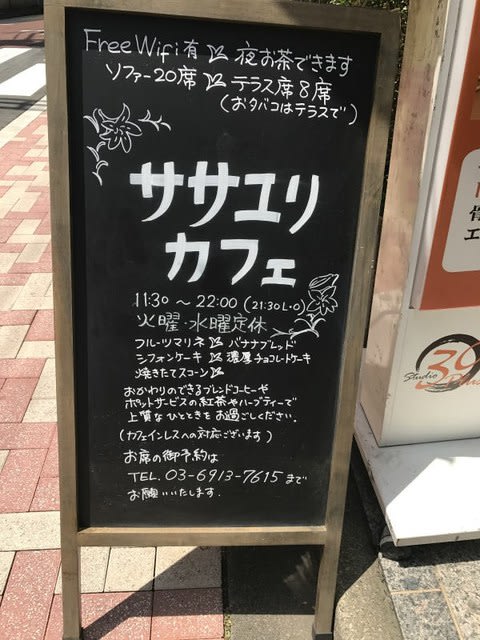 Free Wifi有 夜お茶できます
ソファー20席 テラス席8席
(おタバコはテラスで)
ササユリ
カフェ
11:30 ～ 22:00 (21:30 L・O)
火曜・水曜定休
フルーツマリネ バナナブレッド
シフォンケーキ 濃厚チョコレートケーキ
焼きたてスコーン
おかわりのできるブレンドコーヒーや
ポットサービスの紅茶やハーブティーで
上質なひとときをお過ごしください。
(カフェインレスへの対応ございます)
お席の御予約は
TEL. 03-6913-7615 まで
お願いいたします.
Studio 39